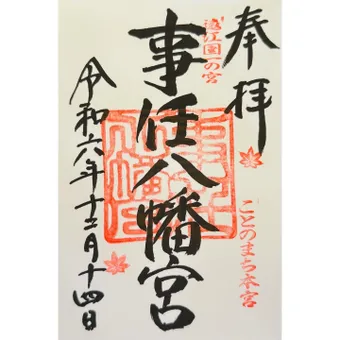 奉拝
ことのまち本宮
遠江國一の宮
事任八幡宮
令和六年十二月十四日